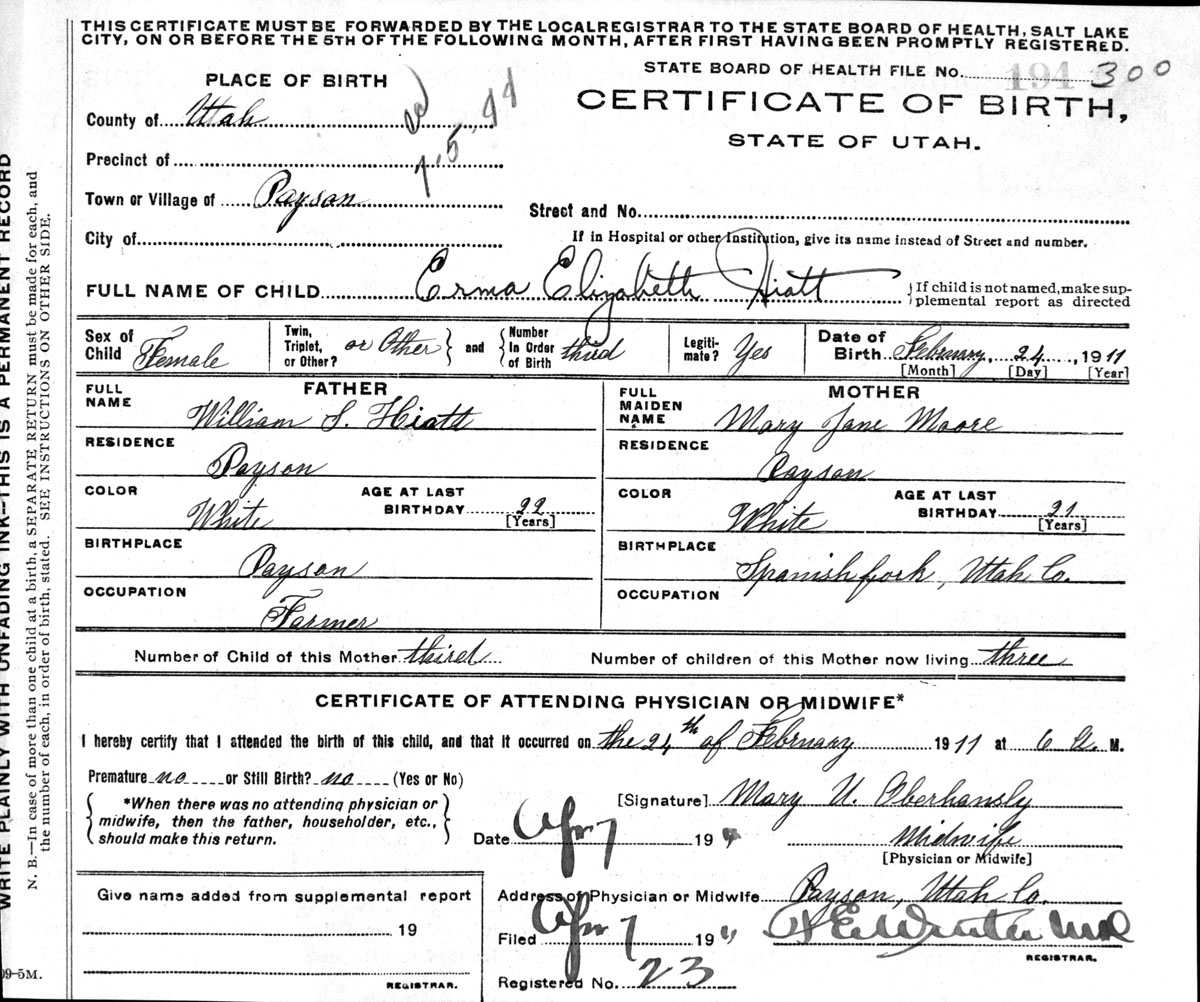 THIS CERTIFICATE MUST BE FORWARDED BY THE LOCAL REGISTRAR TO THE STATE BOARD OF HEALTH, SALT LAKE
CITY, ON OR BEFORE THE 5TH OF THE FOLLOWING MONTH, AFTER FIRST HAVING BEEN PROMPTLY REGISTERED.
STATE BOARD OF HEALTH FILE No. 194 300
PLACE OF BIRTH
CERTIFICATE OF BIRTH,
STATE OF UTAH.
County of Utah
Precinct of
Town or Village of Payson
Street and No.
City of
If in Hospital or other Institution, give its name instead of Street and number.
FULL NAME OF CHILD Erma Elizabeth Hiatt
} If child is not named, make sup-
plemental report as directed
Sex of Child Female
Twin, Triplet, or Other? or Other } and { Number In Order of Birth third
Legiti-mate? Yes
Date of Birth February, 24, 1911
[Month] [Day] [Year]
FATHER
FULL NAME William S. Hiatt
RESIDENCE Payson
COLOR White AGE AT LAST BIRTHDAY 22 [Years]
BIRTHPLACE Payson
OCCUPATION Farmer
MOTHER
FULL MAIDEN NAME Mary Jane Moore
RESIDENCE Payson
COLOR White AGE AT LAST BIRTHDAY 21 [Years]
BIRTHPLACE Spanishfork, Utah Co.
OCCUPATION
Number of Child of this Mother third Number of children of this Mother now living three
CERTIFICATE OF ATTENDING PHYSICIAN OR MIDWIFE*
I hereby certify that I attended the birth of this child, and that it occurred on the 24th of February 1911 at 6 a. M.
Premature no or Still Birth? no (Yes or No)
{ *When there was no attending physician or
midwife, then the father, householder, etc.,
should make this return. }
[Signature] Mary U. Oberhansly
Date Apr 7 19 "
Midwife
[Physician or Midwife]
Address of Physician or Midwife Payson, Utah Co.
Give name added from supplemental report
19
REGISTRAR.
Filed Apr 7 19 "
REGISTRAR.
Registered No. 23
WRITE PLAINLY WITH UNFADING INK—THIS IS A PERMANENT RECORD
N. B.—In case of more than one child at a birth, a SEPARATE RETURN must be made for each, and
the number of each, in order of birth, stated. SEE INSTRUCTIONS ON OTHER SIDE.
09-5M.